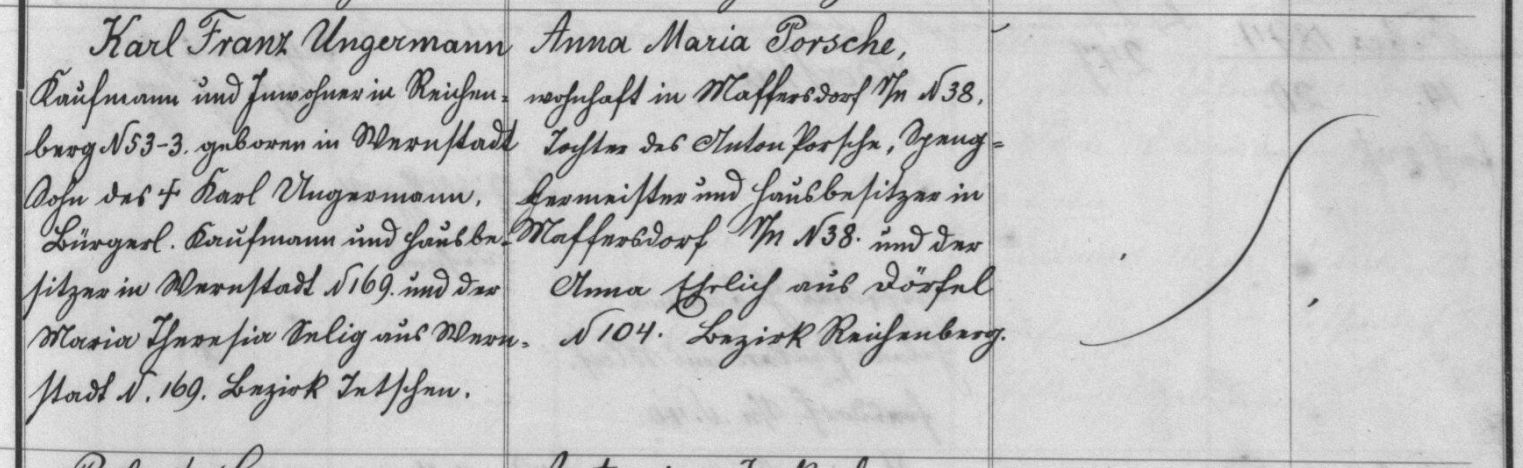 Karl Franz Ungermann
Kaufmann und Inwohner in Reichen-
berg N 53-3. geboren in Wernstadt
Sohn des † Karl Ungermann,
Bürgerl. Kaufmann und Hausbe-
sitzer in Wernstadt N 169. und der
Maria Theresia Selig aus Wern-
stadt N. 169. Bezirk Tetschen.
Anna Maria Porsche,
wohnhaft in Maffersdorf N 38,
Tochter des Anton Porsche, Speng-
lermeister und Hausbesitzer in
Maffersdorf N 38. und der
Anna Ehrlich aus Dörfel
N 104. Bezirk Reichenberg.